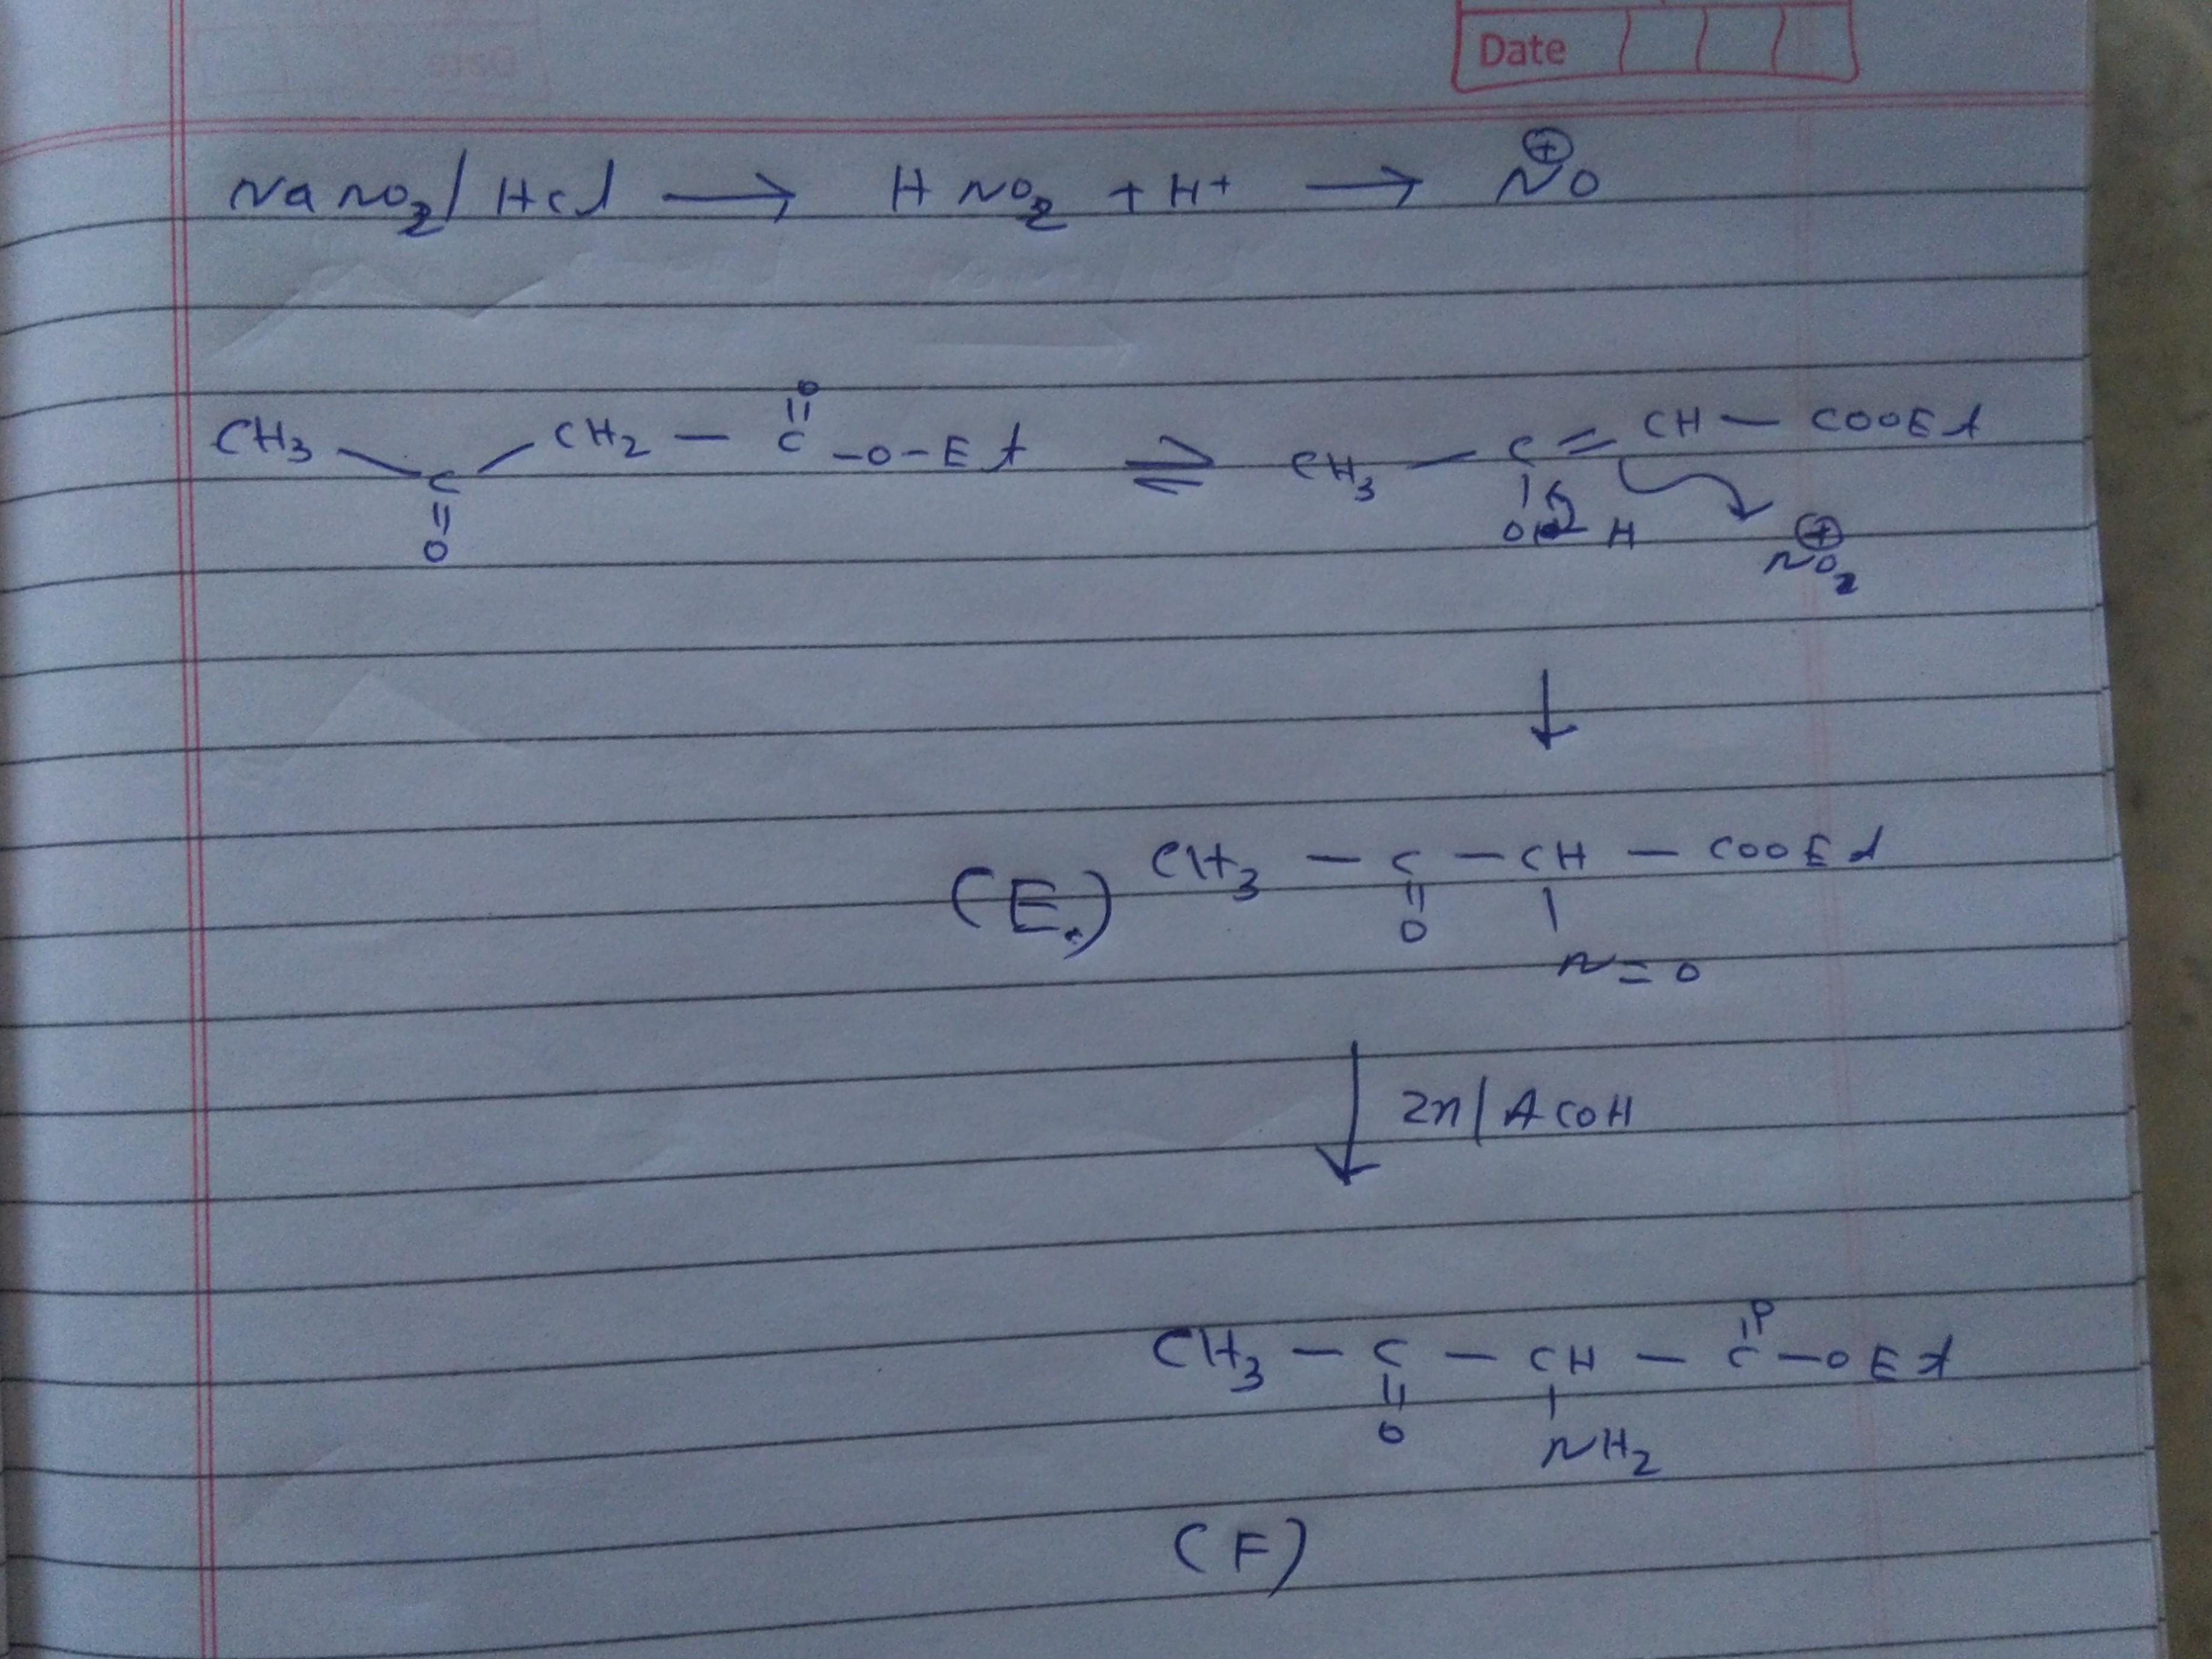 Date
NaNO₂/HCl ⟶ HNO₂ + H⁺ ⟶ N⊕O
CH₃ — C(=O) — CH₂ — C(=O) — O — Et ⇌ CH₃ — C(OH) = CH — COOEt
⊕NO₂
↓
(E.) CH₃ — C(=O) — CH(N=O) — COOEt
↓ Zn/ACOH
CH₃ — C(=O) — CH(NH₂) — C(=O) — OEt
(F)